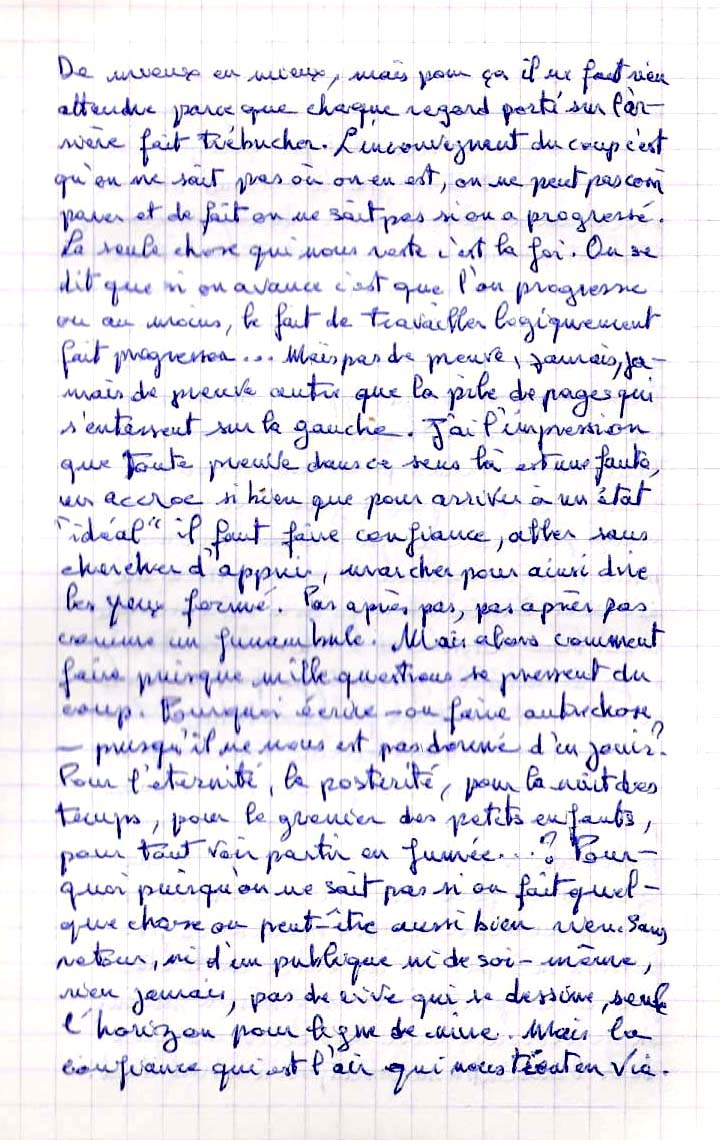 De mieux en mieux, mais pour ça il ne faut rien
attendre parce que chaque regard porté sur l'ar-
rière fait trébucher. L'inconvegnent du coup c'est
qu'on ne sait pas où on en est, on ne peut pas com
parer et de fait on ne sait pas si on a progressé.
La seule chose qui nous reste c'est la foi. On se
dit que si on avance c'est que l'on progresse
ou au moins, le fait de travailler logiquement
fait progresser... Mais pas de preuve, jamais, ja-
mais de preuve autre que la pile de pages qui
s'entassent sur la gauche. J'ai l'impression
que toute preuve dans ce sens là est une faute,
un accroc si bien que pour arriver à un état
"idéal" il faut faire confiance, aller sans
chercher d'appui, marcher pour ainsi dire
les yeux fermé. Pas après pas, pas après pas
comme un funambule. Mais alors comment
faire puisque mille questions se pressent du
coup. Pourquoi écrire – ou faire autrechose
– puisqu'il ne nous est pas donné d'en jouir?
Pour l'eternité, la posterité, pour la nuit des
temps, pour le grenier des petits enfants,
pour tout voir partir en fumée...? Pour-
quoi puisqu'on ne sait pas si on fait quel-
que chose ou peut-être aussi bien rien. Sans
retour, ni d'un publique ni de soi-même,
rien jamais, pas de rive qui se dessine, seule
l'horizon pour ligne de mire. Mais la
confiance qui est l'air qui nous tient en vie.